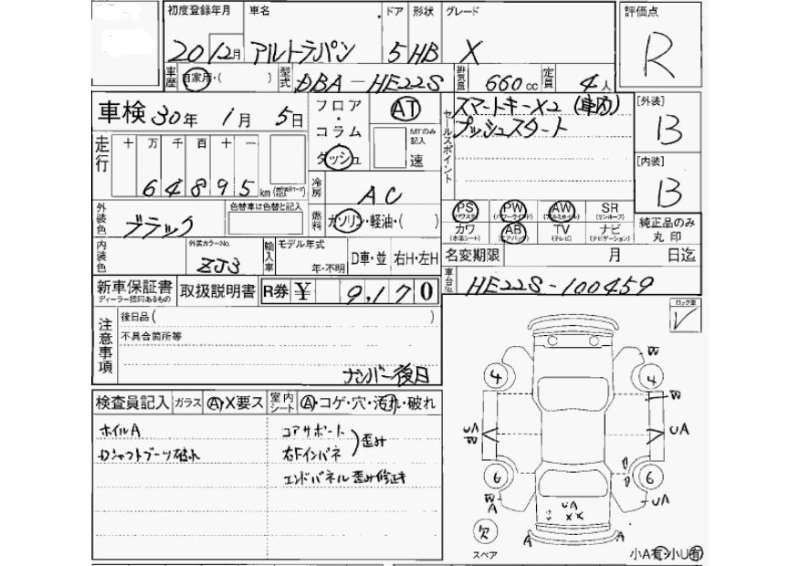 初度登録年月 車名 ドア 形状 グレード 評価点
20 12月 アルトラパン 5 HB X R
車歴 自家用・( ) 型式 DBA-HE22S 排気量 660cc 定員 4人
車検 30年 1月 5日 フロア・コラム・ダッシュ AT MTのみ記入 速
セールスポイント スマートキーX2(車内)
プッシュスタート
[外装] B
[内装] B
走行 十 万 千 百 十 一
64895 km
冷房 AC
外装色 ブラック 色替車は色替と記入 燃料 ガソリン・軽油・( )
PS PW AW SR
(パワステ) (パワーウインド) (アルミホイル) (サンルーフ)
カワ AB TV ナビ
(本革シート) (エアバック) (テレビ) (ナビゲーション)
純正品のみ丸印
内装色 外装カラーNo. ZJ3 輸入車 モデル年式 年・不明 D車・並 右H・左H
名変期限 月 日迄
車台No. HE22S-100459
新車保証書 ディーラー捺印あるもの 取扱説明書 R券 ¥ 9,170
注意事項 後日品( )
不具合箇所等
ナンバー後日
ロック車
検査員記入 ガラス A・X要ス 室内シート A・コゲ・穴・汚れ・破れ
ホイルA コアサポート
Dシャフトブーツ破れ 右Fインパネ 歪み
エンドパネル歪み修正キ
4 4
UA UA
6 6
A UA
UA
XX
欠 A A
スペア
小A有・小U有